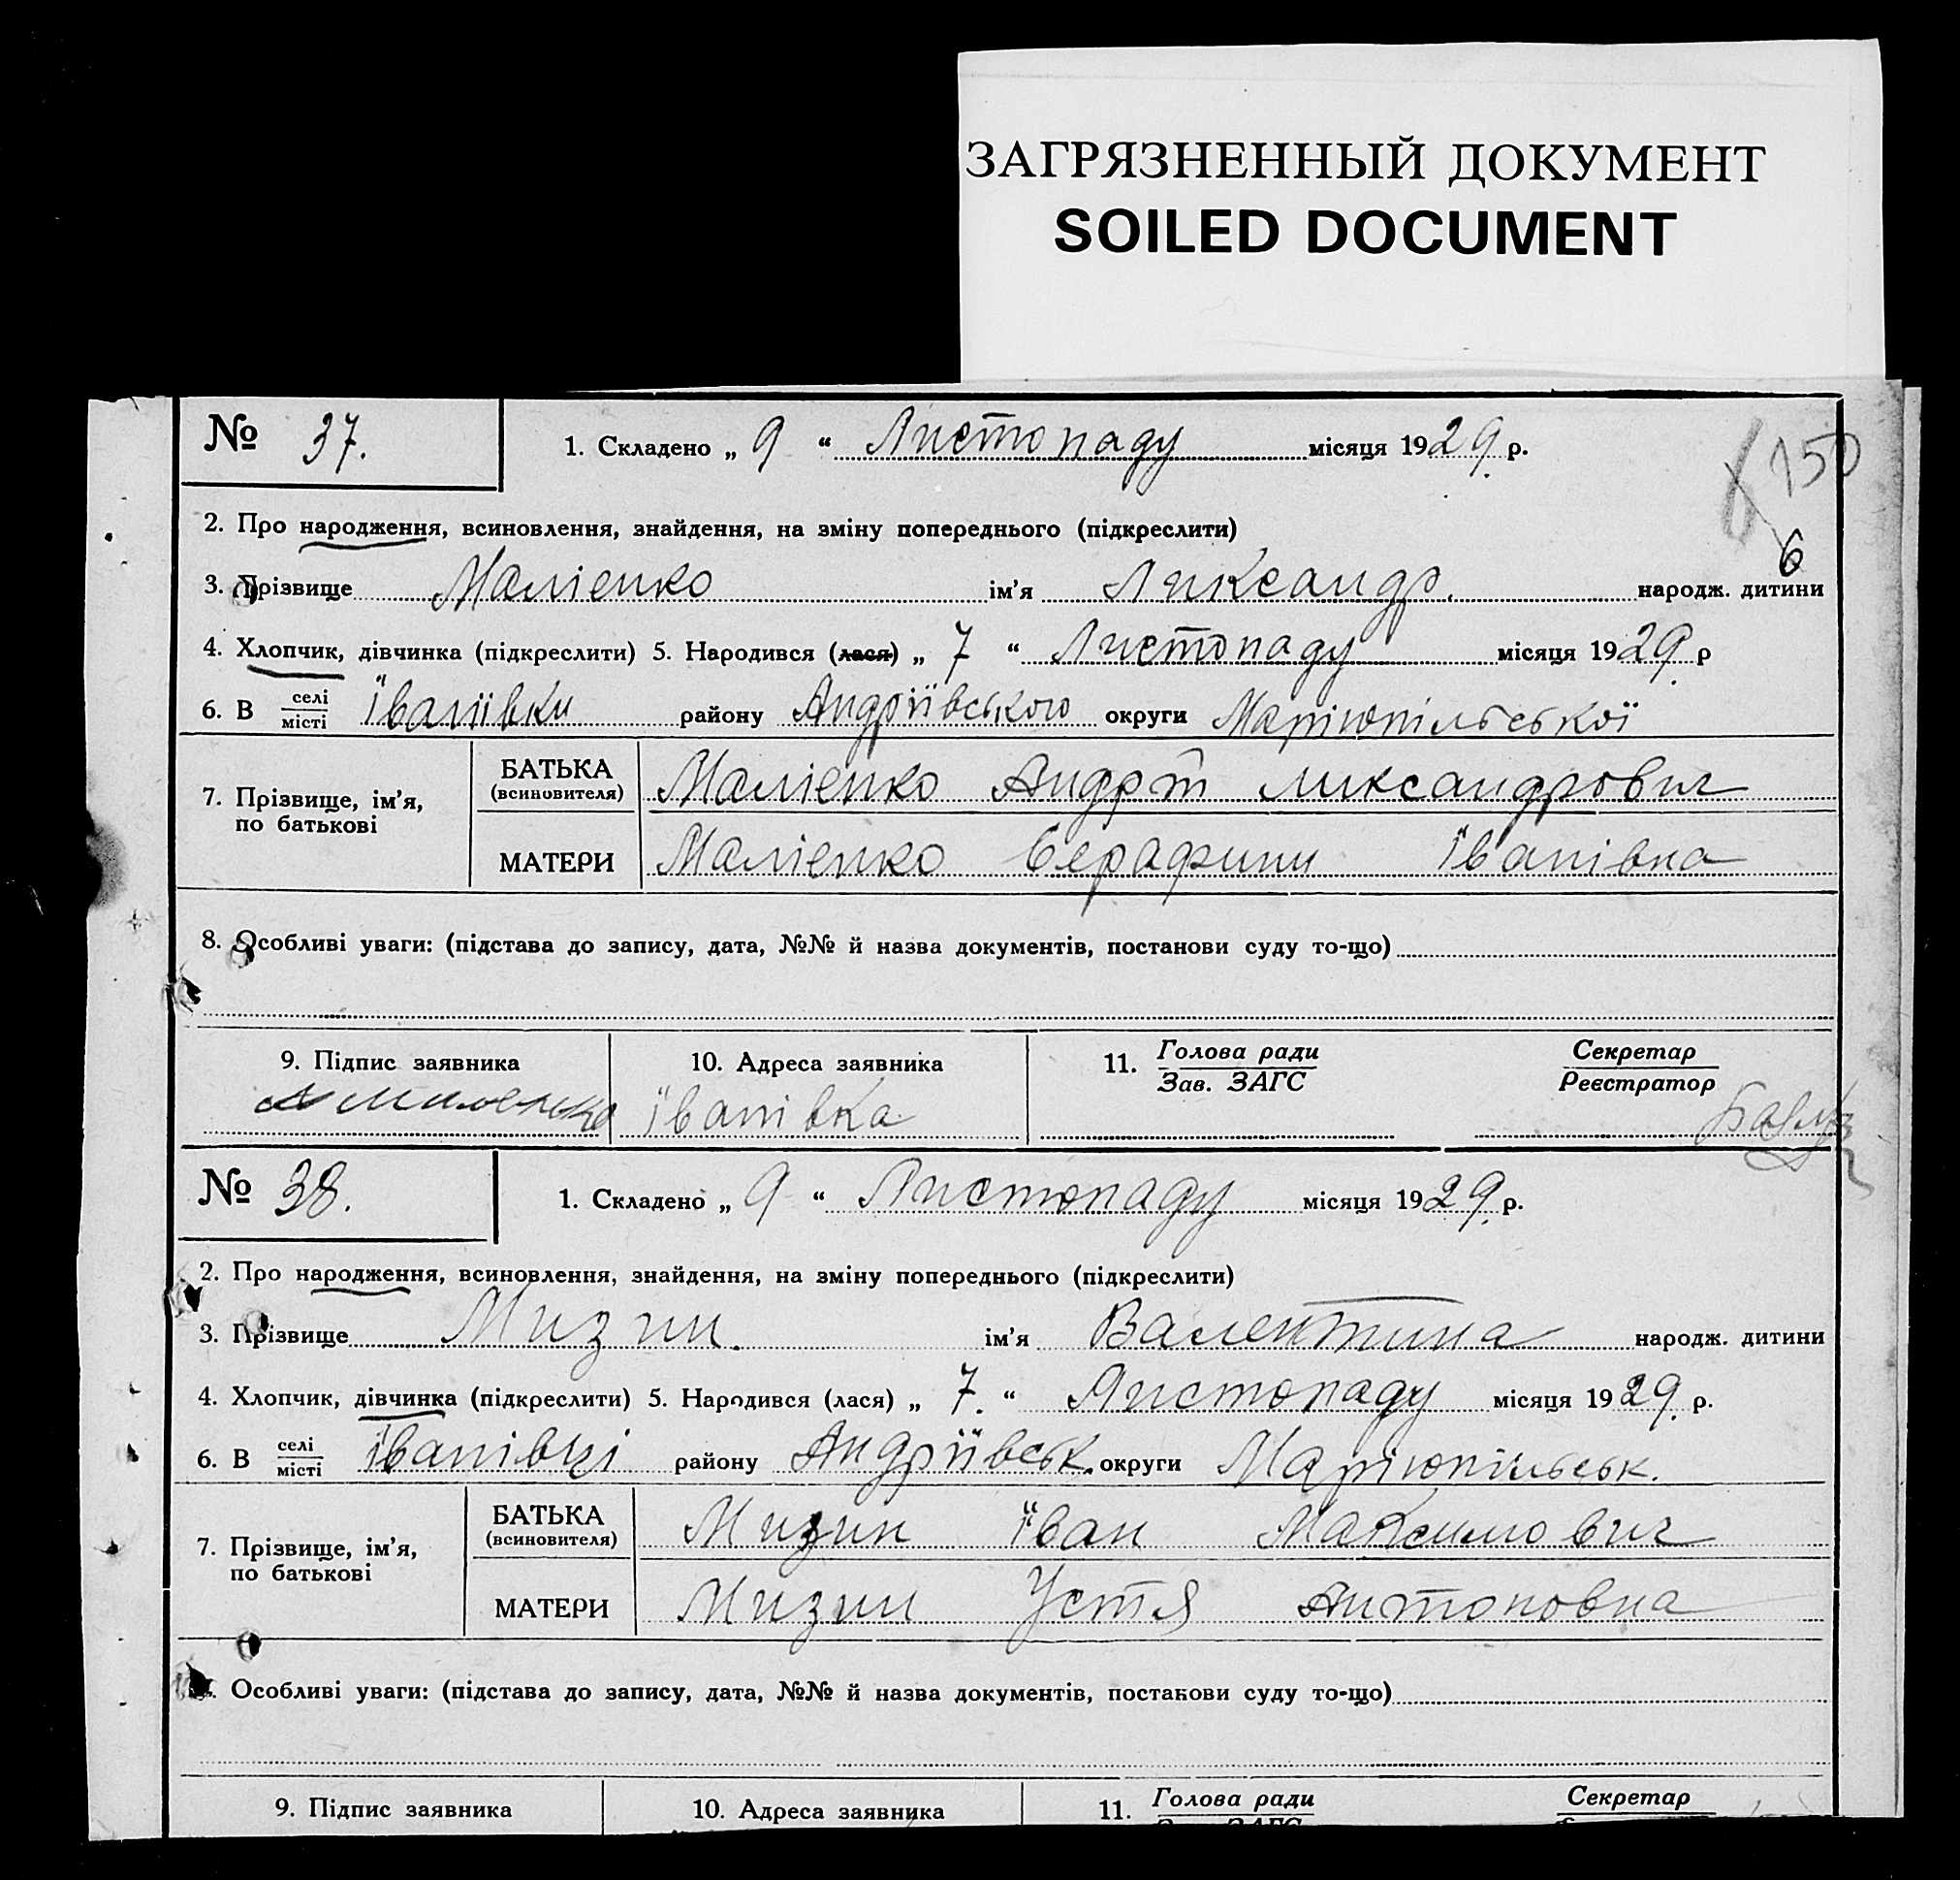 ЗАГРЯЗНЕННЫЙ ДОКУМЕНТ
SOILED DOCUMENT
№ 37. 1. Складено „ 9 “ Листопаду місяця 1929 р.
150
2. Про народження, всиновлення, знайдення, на зміну попереднього (підкреслити)
6
3. Прізвище Малієнко ім’я Лиександр. народж. дитини
4. Хлопчик, дівчинка (підкреслити) 5. Народився (лася) „ 7 “ Листопаду місяця 1929 р
6. В селі/місті Їванївки району Андріївського округи Маріюпільської
7. Прізвище, ім’я, по батькові
БАТЬКА (всиновителя) Малієнко Андрт Лиександрович
МАТЕРИ Малієнко Серафини Їванівна
8. Особливі уваги: (підстава до запису, дата, №№ й назва документів, постанови суду то-що)
9. Підпис заявника 10. Адреса заявника 11. Голова ради/Зав. ЗАГС Секретар/Реєстратор
Їванівка
№ 38. 1. Складено „ 9 “ Листопаду місяця 1929 р.
2. Про народження, всиновлення, знайдення, на зміну попереднього (підкреслити)
3. Прізвище Мизин. ім’я Валентина народж. дитини
4. Хлопчик, дівчинка (підкреслити) 5. Народився (лася) „ 7. “ Листопаду місяця 1929 р.
6. В селі/місті Їванівці району Андріївськ. округи Маріюпільськ.
7. Прізвище, ім’я, по батькові
БАТЬКА (всиновителя) Мизин Їван Максимович
МАТЕРИ Мизин Устя Антоновна
Особливі уваги: (підстава до запису, дата, №№ й назва документів, постанови суду то-що)
9. Підпис заявника 10. Адреса заявника 11. Голова ради Секретар